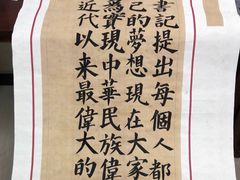 書記提出每個人都
己的夢想現在大家
為實現中華民族偉
近代以來最偉大的